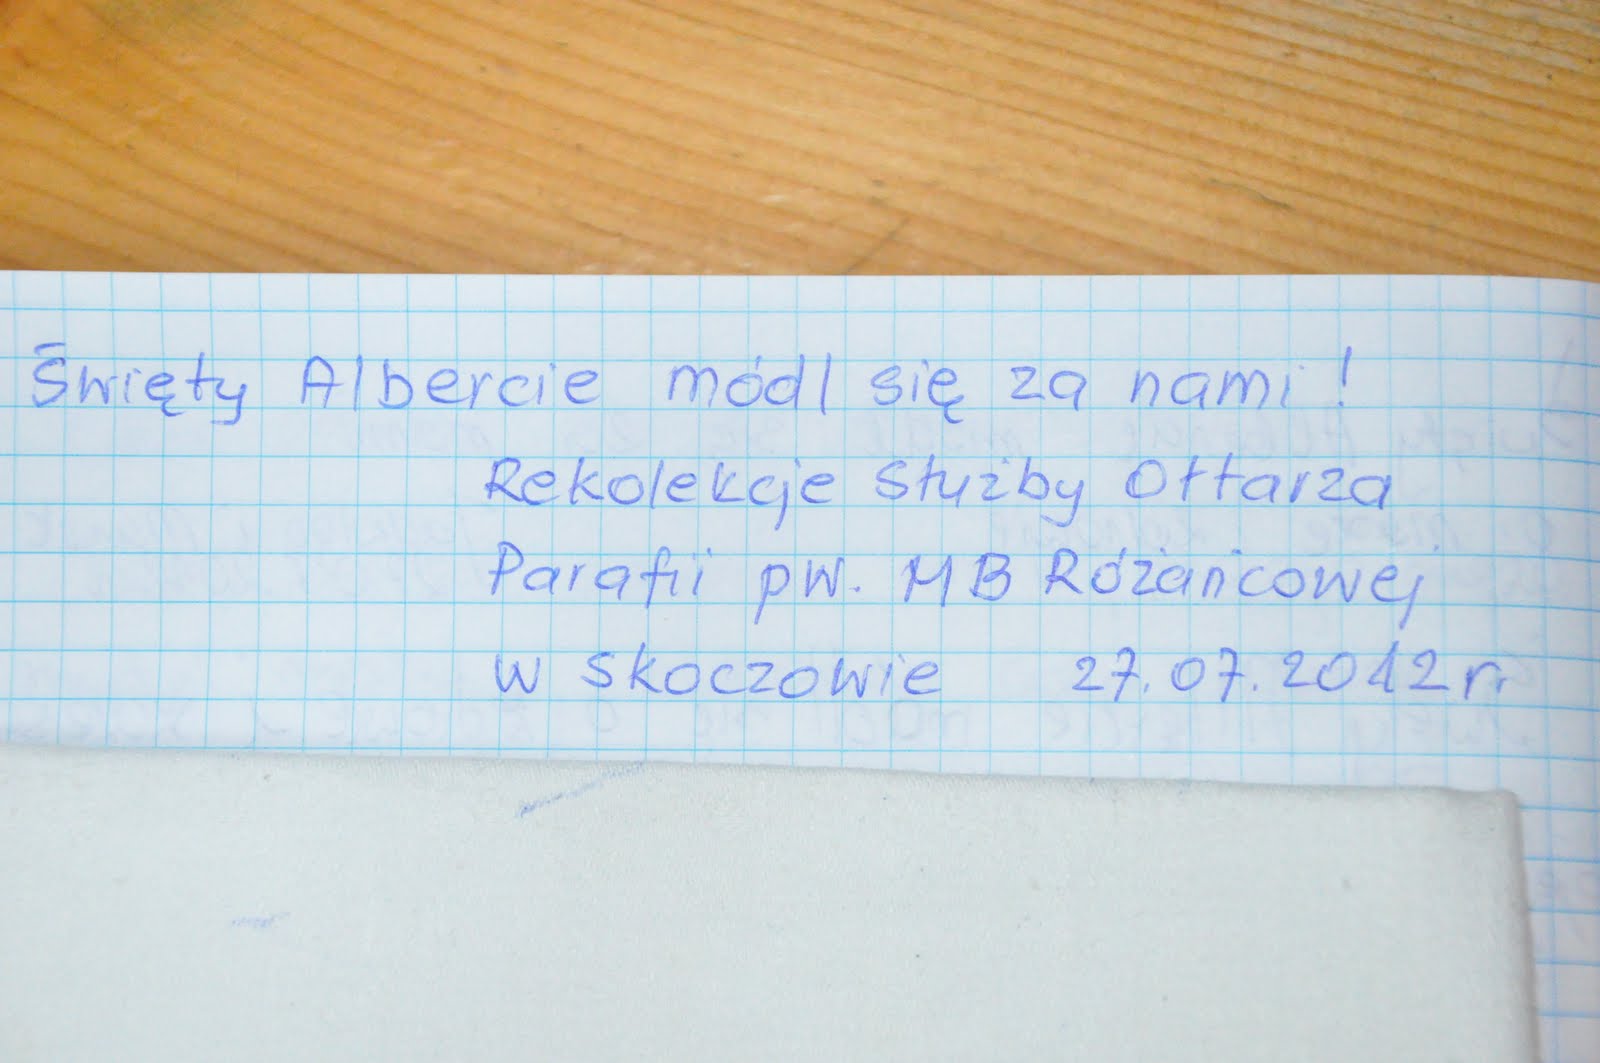 Święty Albercie módl się za nami!
Rekolekcje Służby Ołtarza
Parafii pw. MB Różańcowej
w Skoczowie 27.07.2012 r.